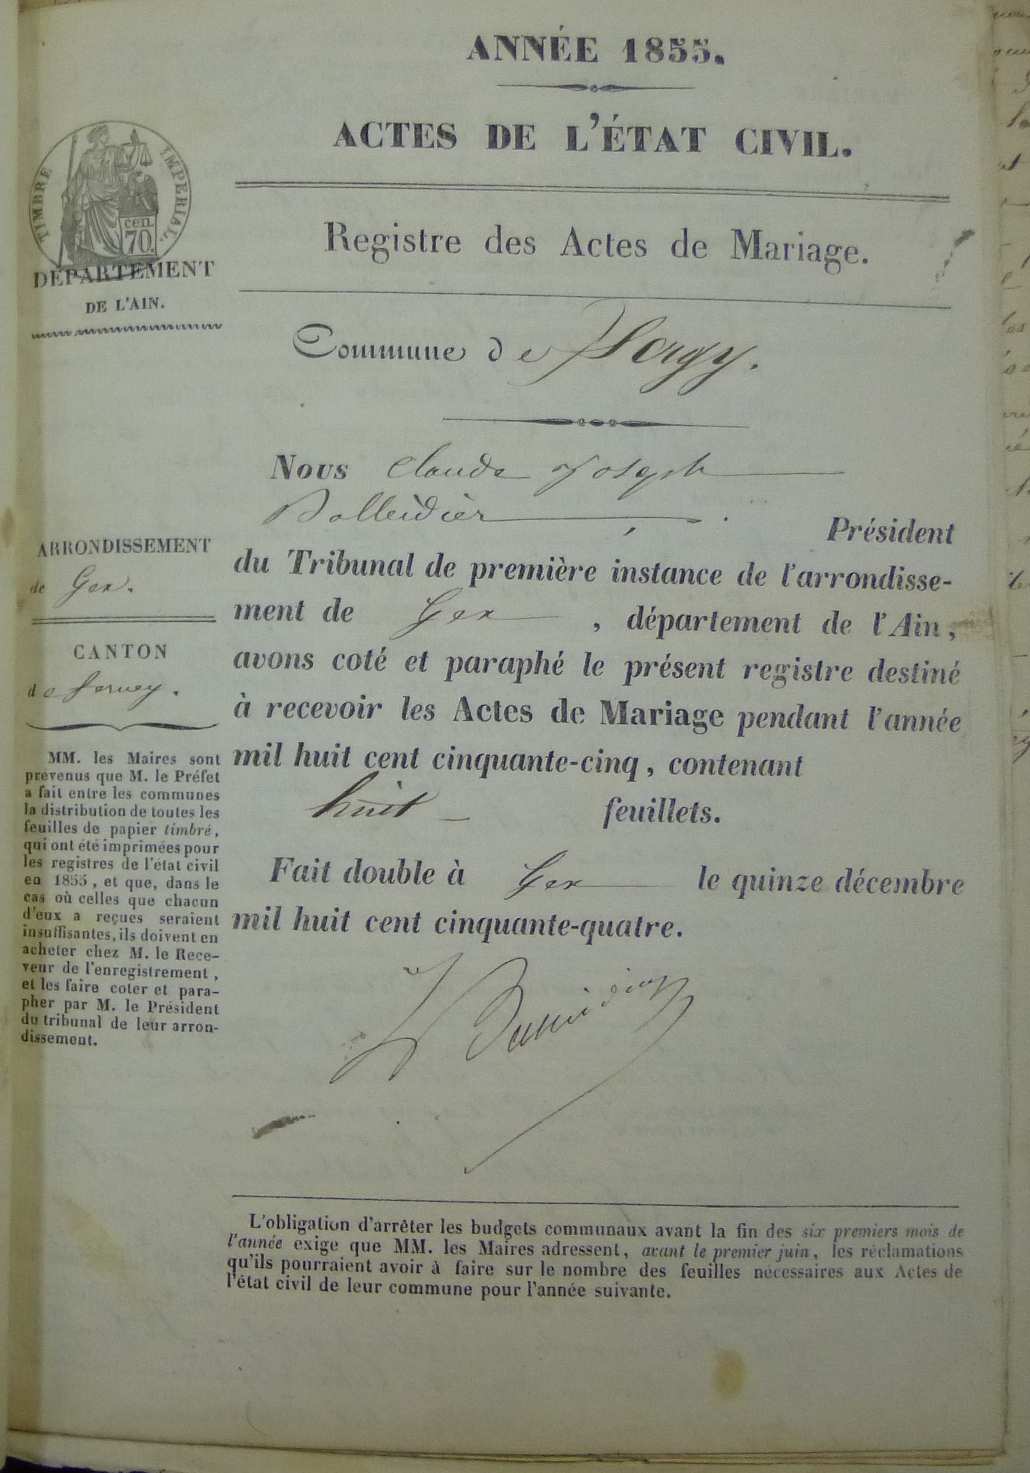 ANNÉE 1855.
ACTES DE L'ÉTAT CIVIL.
TIMBRE IMPERIAL.
cen
70
DÉPARTEMENT
DE L'AIN.
Registre des Actes de Mariage.
Commune de Sergy.
Nous Claude Joseph
Balleidier Président
du Tribunal de première instance de l'arrondisse-
ment de Gex, département de l'Ain,
avons coté et paraphé le présent registre destiné
à recevoir les Actes de Mariage pendant l'année
mil huit cent cinquante-cinq, contenant
huit feuillets.
Fait double à Gex le quinze décembre
mil huit cent cinquante-quatre.
ARRONDISSEMENT
de Gex.
CANTON
de Ferney.
MM. les Maires sont
prévenus que M. le Préfet
a fait entre les communes
la distribution de toutes les
feuilles de papier timbré,
qui ont été imprimées pour
les registres de l'état civil
en 1855, et que, dans le
cas où celles que chacun
d'eux a reçues seraient
insuffisantes, ils doivent en
acheter chez M. le Rece-
veur de l'enregistrement,
et les faire coter et para-
pher par M. le Président
du tribunal de leur arron-
dissement.
L'obligation d'arrêter les budgets communaux avant la fin des six premiers mois de
l'année exige que MM. les Maires adressent, avant le premier juin, les réclamations
qu'ils pourraient avoir à faire sur le nombre des feuilles nécessaires aux Actes de
l'état civil de leur commune pour l'année suivante.